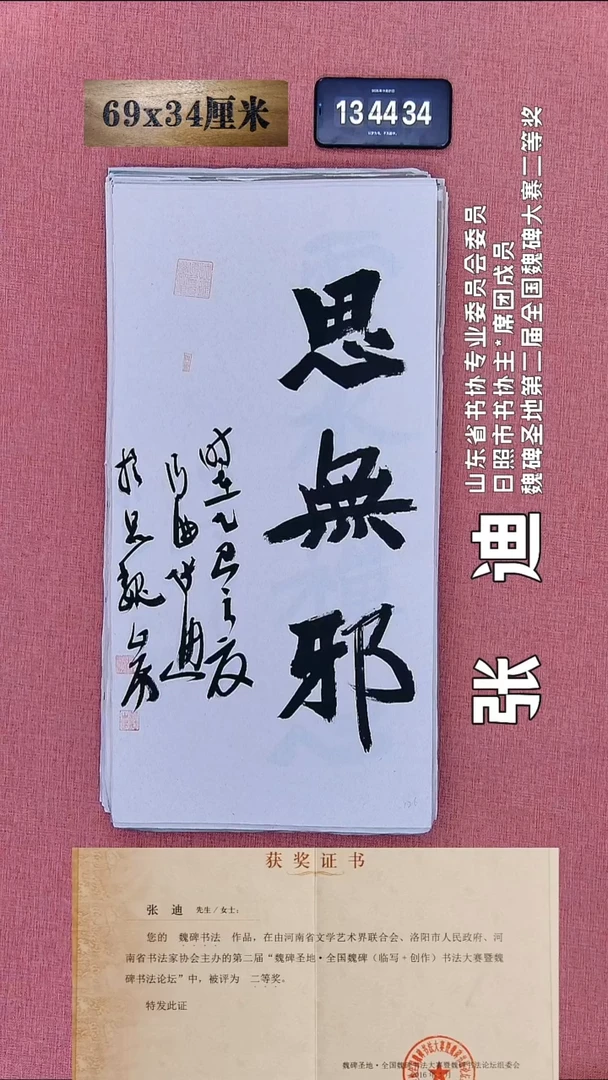 69x34厘米
13 44 34
山东省书协专业委员会委员
日照市书协主*席团成员
魏碑圣地第二届全国魏碑大赛二等奖
张 迪
思無邪
时在乙巳之夏
获奖证书
张 迪 先生/女士:
您的 魏碑书法 作品,在由河南省文学艺术界联合会、洛阳市人民政府、河
南省书法家协会主办的第二届“魏碑圣地·全国魏碑(临写+创作)书法大赛暨魏
碑书法论坛”中,被评为 二等奖。
特发此证
魏碑圣地·全国魏碑书法大赛暨魏碑书法论坛组委会